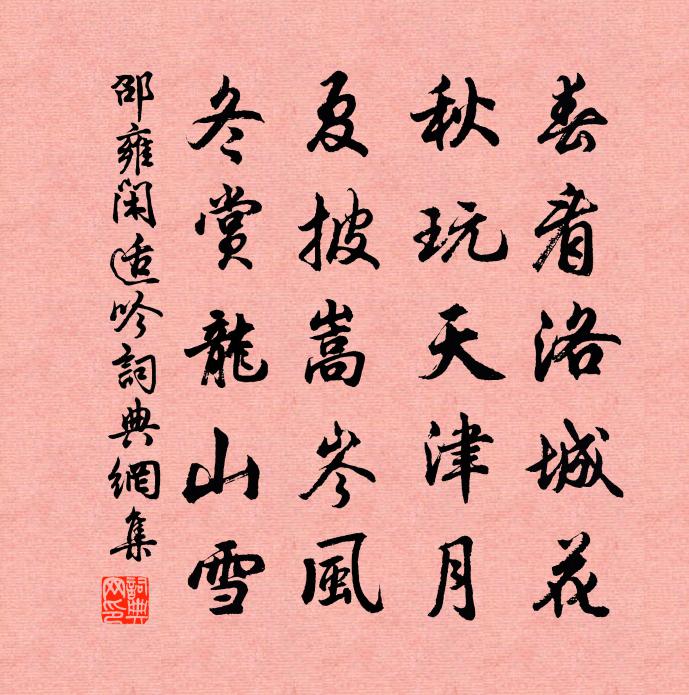 春看洛城花
秋玩天津月
夏披嵩岑風
冬賞龍山雪
邵雍閑適吟詞典網集
詞典網印